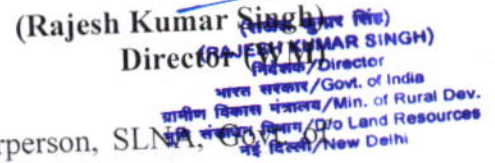 (Rajesh Kumar Singh)
Director (WM)
(राजेश कुमार सिंह)
(RAJESH KUMAR SINGH)
निदेशक/Director
भारत सरकार/Govt. of India
ग्रामीण विकास मंत्रालय/Min. of Rural Dev.
भूमि संसाधन विभाग/D/o Land Resources
नई दिल्ली/New Delhi
SLNA, Govt. of